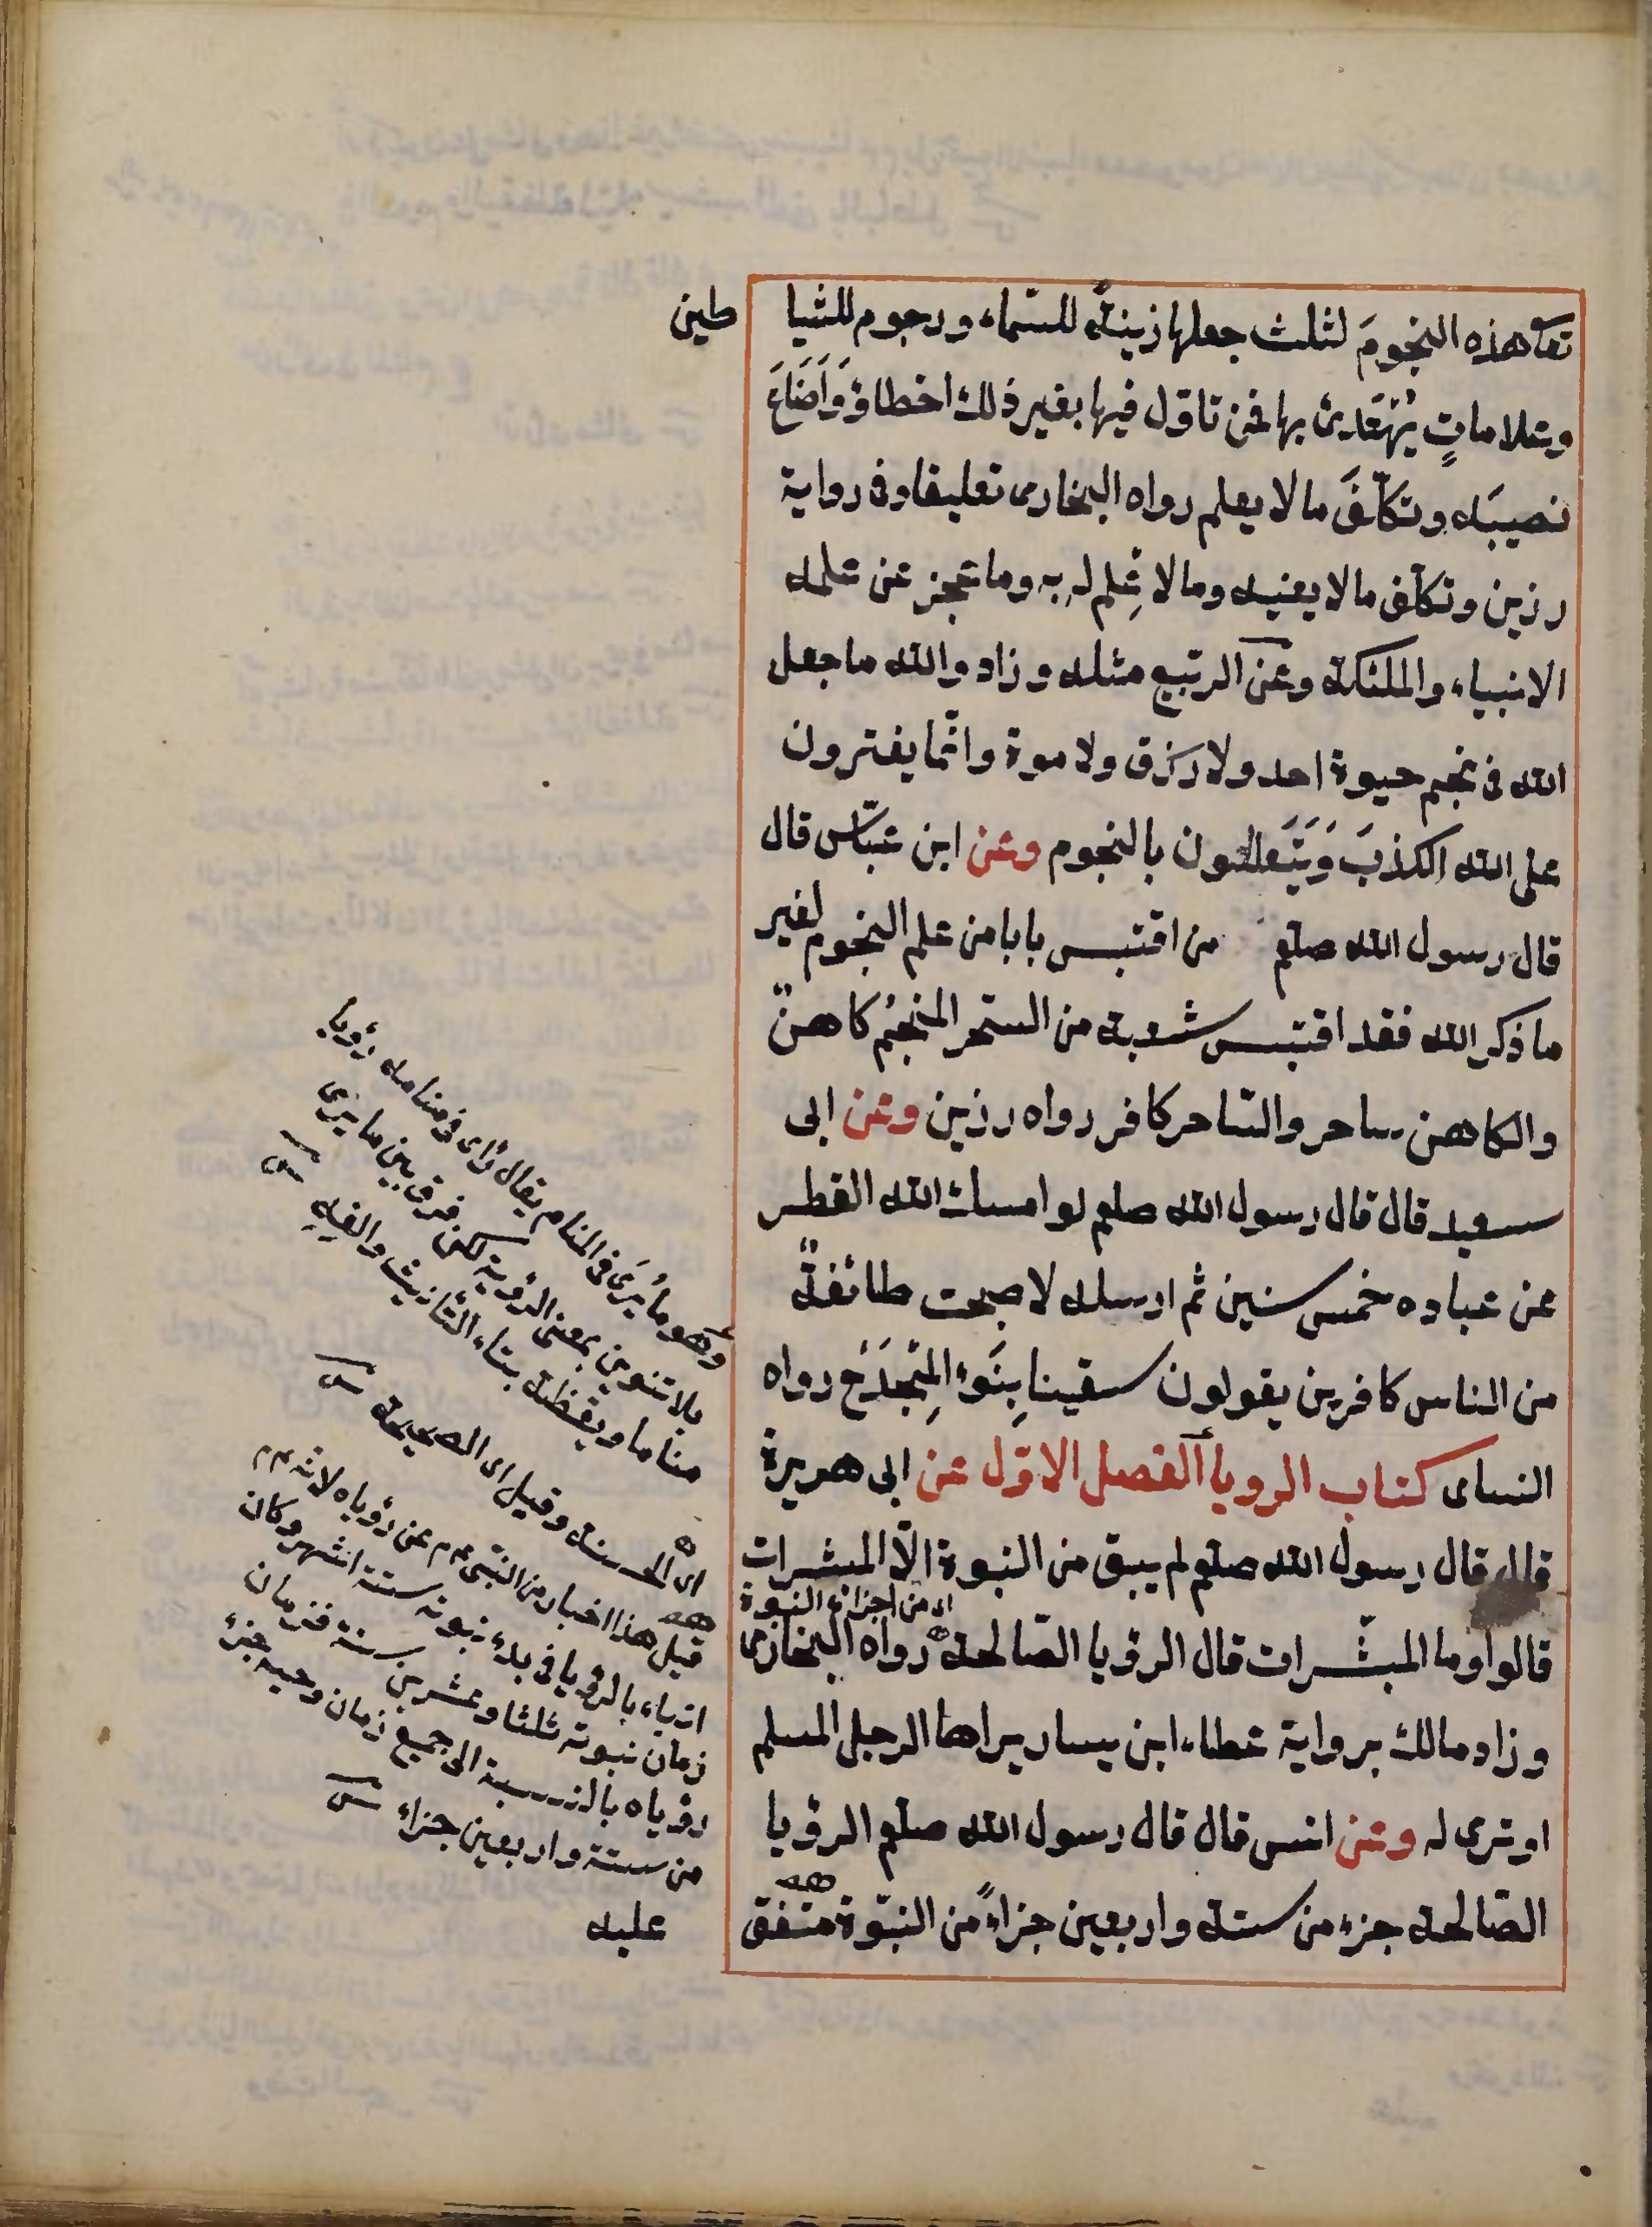 تعا هذه النجومَ لثلث جعلها زينةً للسّماء ورجوم للشيا طين
وعلاماتٍ يُهْتَدىٰ بها فمن تاوّل فيها بغير ذلك اخطاؤ وَاَضَاعَ
نصيبَه وتكلّفَ ما لا يعلم رواه البخارى تعليقا وفى رواية
رزين وتكلّف ما لا يعنيه وما لا عِلم له به وما عجز عن علمه
الانبياء والملئكة وعن الربيع مثله وزاد والله ما جعل
الله فى نجم حيوة احد ولا رزق ولا موة وانّما يفترون
على الله الكذبَ وَيَتَعَللون بالنجوم وعن ابن عبّاس قال
قال رسول الله صلعم من اقتبس بابا من علم النجوم لغير
ما ذكر الله فقد اقتبس شعبة من السّحر المنجّم كاهنٌ
والكاهن ساحر والسّاحر كافر رواه رزين وعن ابى
سعيد قال قال رسول الله صلعم لو امسك الله القطر
عن عباده خمس سنين ثم ارسله لاصبحت طائفةٌ
من الناس كافرين يقولون سقينا بِنَوْءِ المِجْدَحِ رواه
النساى كتاب الرويا الفصل الاوّل عن ابى هريرة
قال قال رسول الله صلعم لم يبق من النبوة الّا المبشرات
اى من اجزاء النبوة
قالوا وما المبشّرات قال الرؤيا الصّالحة رواه البخارى
وزاد مالك برواية عطاء ابن يسار يراها الرجل المسلم
او ترى له وعن انس قال قال رسول الله صلعم الرؤيا
الصّالحة جزء من ستة واربعين جزاءً من النبوّة متّفق
عليه
وهو ما يُرَى فى المنام يقال رأى فى منامه رؤيا
بلا تنوين بمعنى الرؤية لكن فرق بين ما يرى
مناما ويقظة بتاء التأنيث والفه
اى الحسنة وقيل اى الصحيحة
قيل هذا اخبار من النبى عم عن رؤياه لانه عم
انباء بالرؤيا فى بدء نبوته ستة اشهر وكان
زمان نبوته ثلثا وعشرين سنة فزمان
رؤياه بالنسبة الى جميع زمان وحيه جزء
من ستة واربعين جزاء